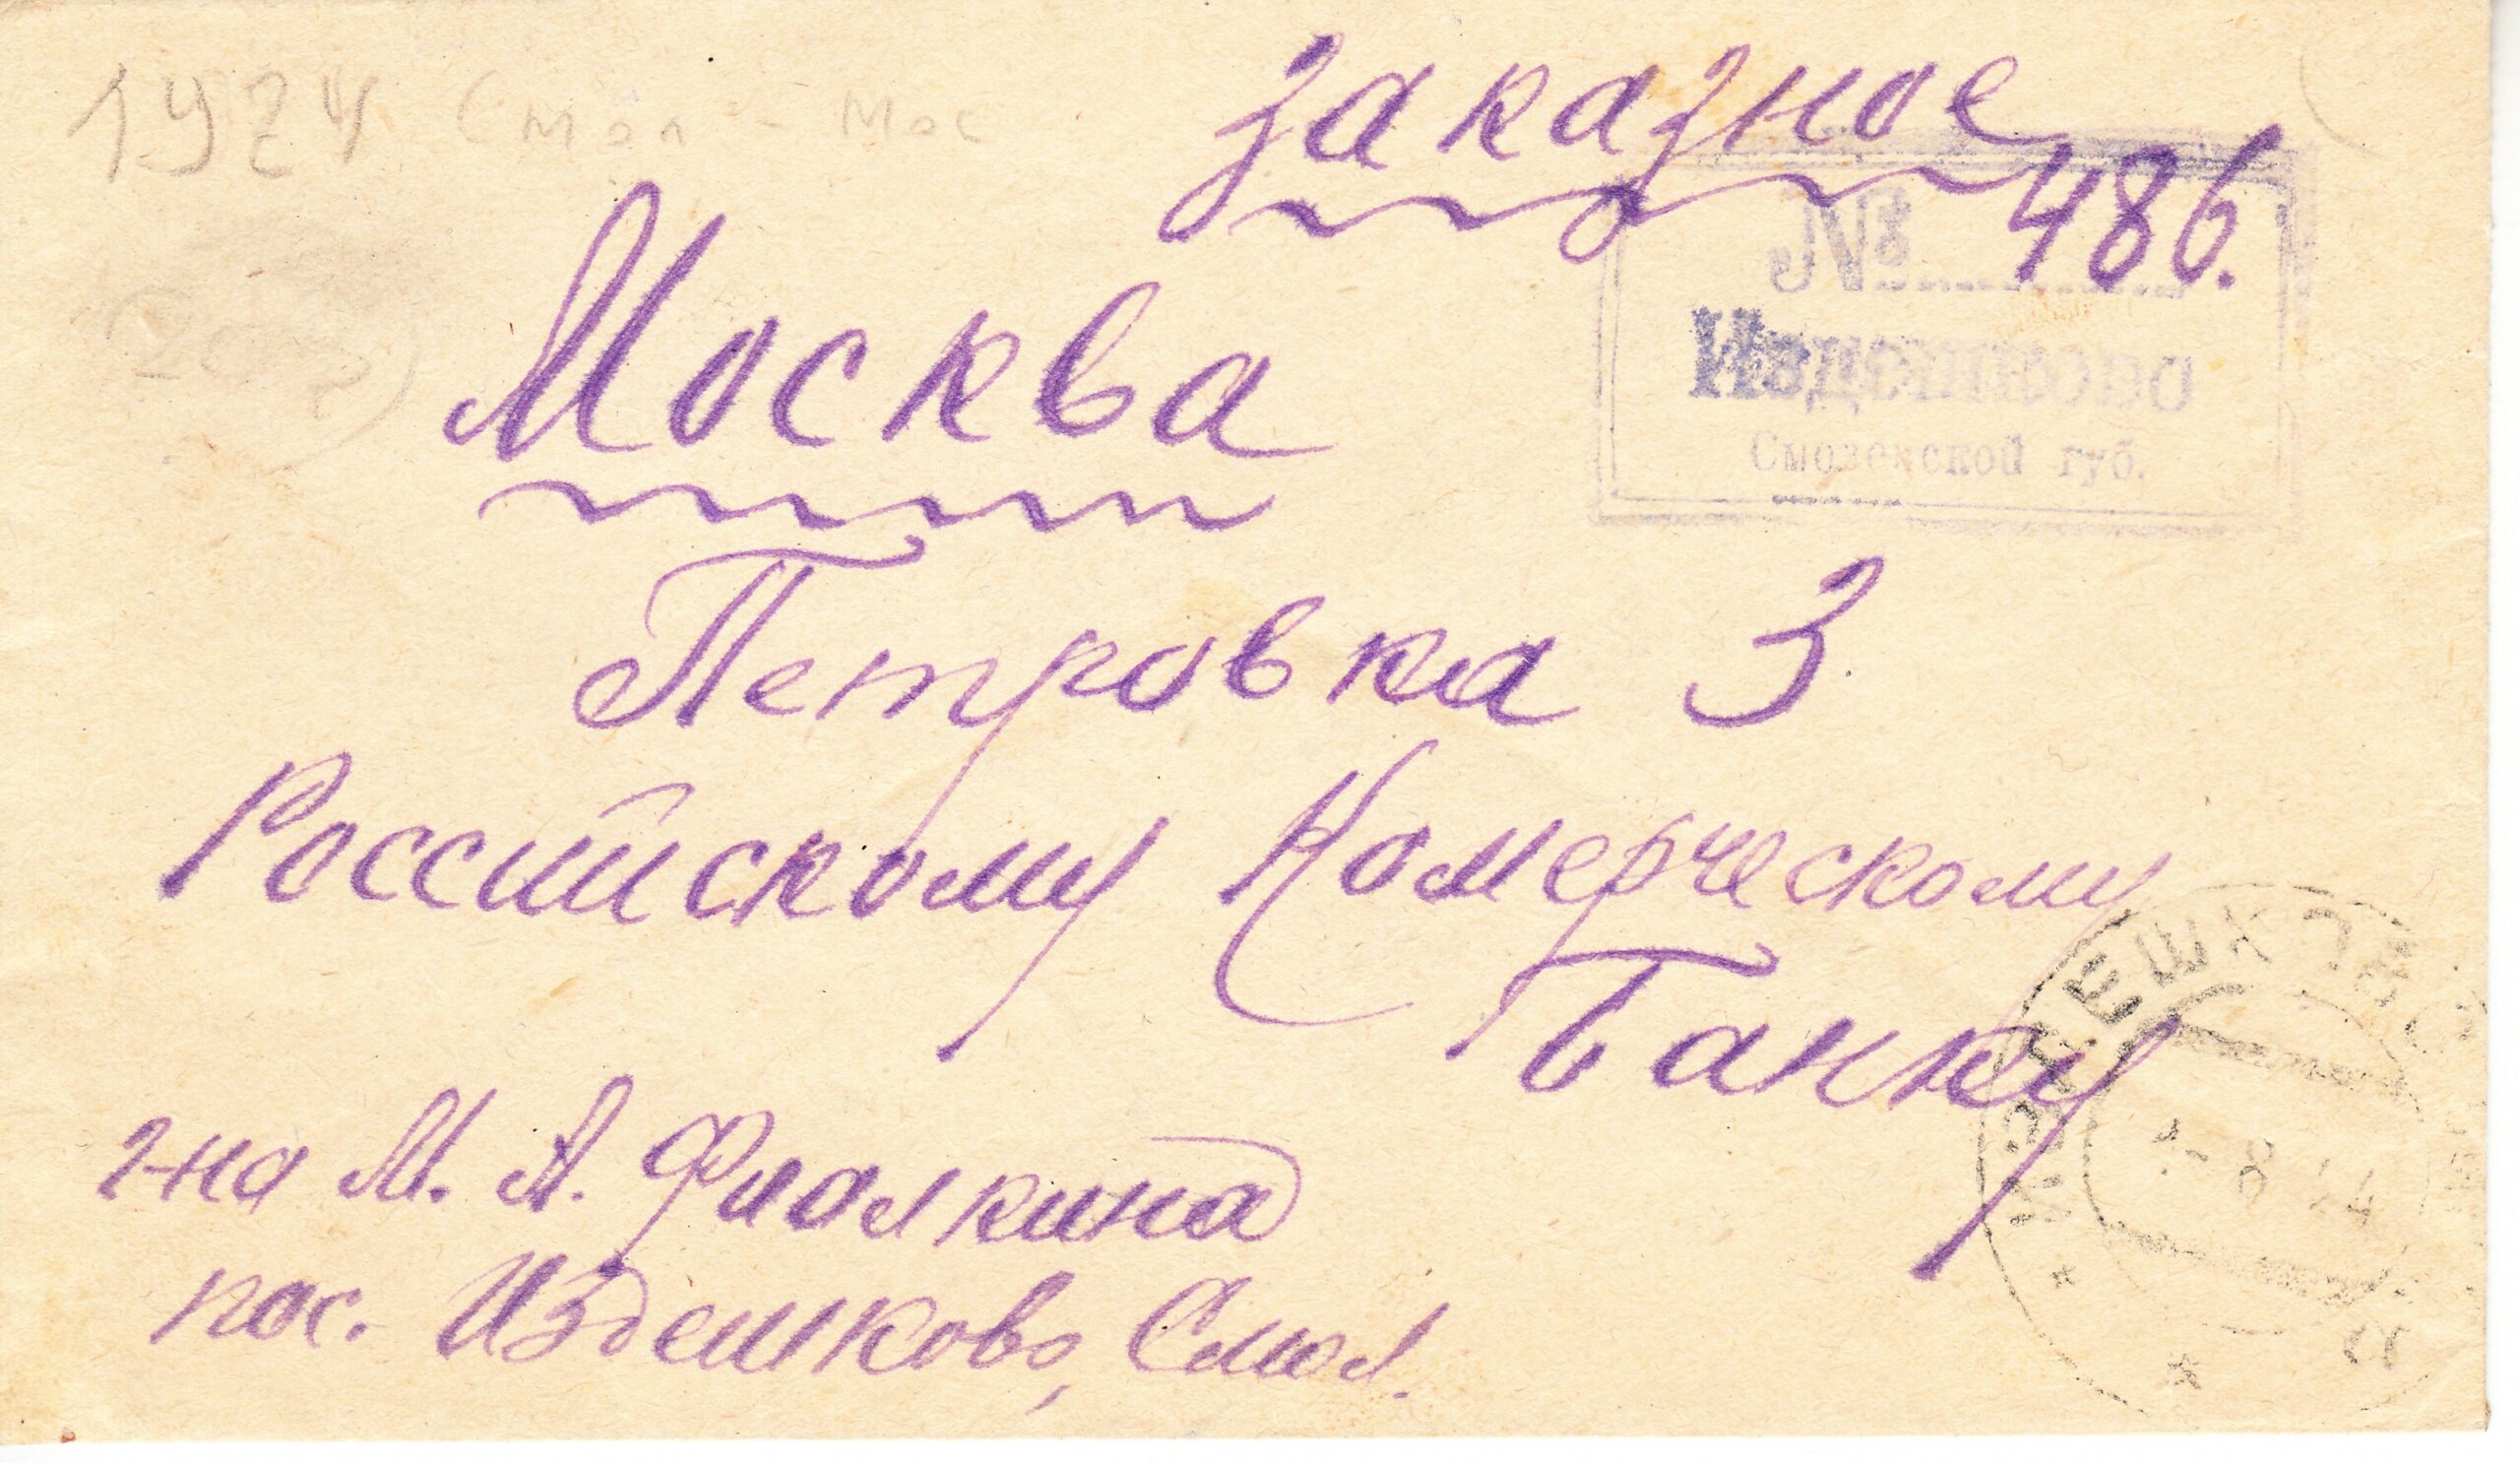 1924 Смол - Мос
Заказное
№ 486.
Издешково
Смоленской губ.
Москва
Петровка 3
Российскому Комерческому
Банку
г-на М. А. Фиалкина
пос. Издешково, Смол.
ИЗДЕШКОВО
1-8 24